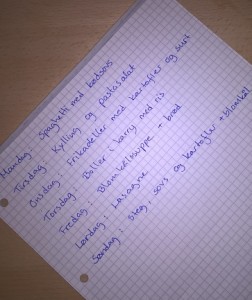 Mandag: Spaghetti med kødsovs
Tirsdag: Kylling og pastasalat
Onsdag: Frikadeller med kartofler og surt
Torsdag: Boller i karry med ris
Fredag: Blomkålssuppe + brød
Lørdag: Lasagne
Søndag: steg, sovs og kartofler + blomkål